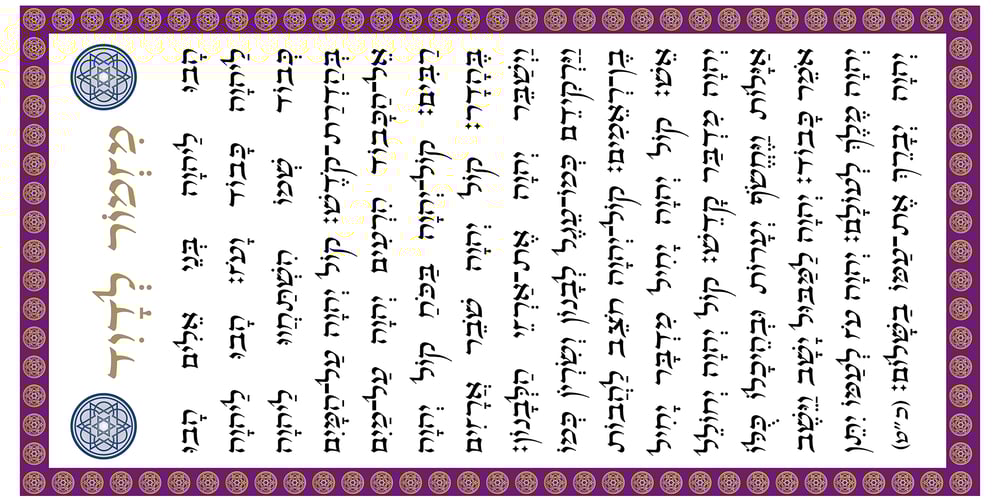 מִזְמוֹר לְדָוִד
הָבוּ לַיהוָה בְּנֵי אֵלִים הָבוּ
לַיהוָה כָּבוֹד וָעֹז: הָבוּ לַיהוָה
כְּבוֹד שְׁמוֹ הִשְׁתַּחֲווּ לַיהוָה
בְּהַדְרַת-קֹדֶשׁ: קוֹל יְהוָה עַל-הַמָּיִם
אֵל-הַכָּבוֹד הִרְעִים יְהוָה עַל-מַיִם
רַבִּים: קוֹל-יְהוָה בַּכֹּחַ קוֹל יְהוָה
בֶּהָדָר: קוֹל יְהוָה שֹׁבֵר אֲרָזִים
וַיְשַׁבֵּר יְהוָה אֶת-אַרְזֵי הַלְּבָנוֹן:
וַיַּרְקִידֵם כְּמוֹ-עֵגֶל לְבָנוֹן וְשִׂרְיֹן כְּמוֹ
בֶן-רְאֵמִים: קוֹל-יְהוָה חֹצֵב לַהֲבוֹת
אֵשׁ: קוֹל יְהוָה יָחִיל מִדְבָּר יָחִיל
יְהוָה מִדְבַּר קָדֵשׁ: קוֹל יְהוָה יְחוֹלֵל
אַיָּלוֹת וַיֶּחֱשֹׂף יְעָרוֹת וּבְהֵיכָלוֹ כֻּלּוֹ
אֹמֵר כָּבוֹד: יְהוָה לַמַּבּוּל יָשָׁב וַיֵּשֶׁב
יְהוָה מֶלֶךְ לְעוֹלָם: יְהוָה עֹז לְעַמּוֹ יִתֵּן
יְהוָה יְבָרֵךְ אֶת-עַמּוֹ בַשָּׁלוֹם: (כ"ט)